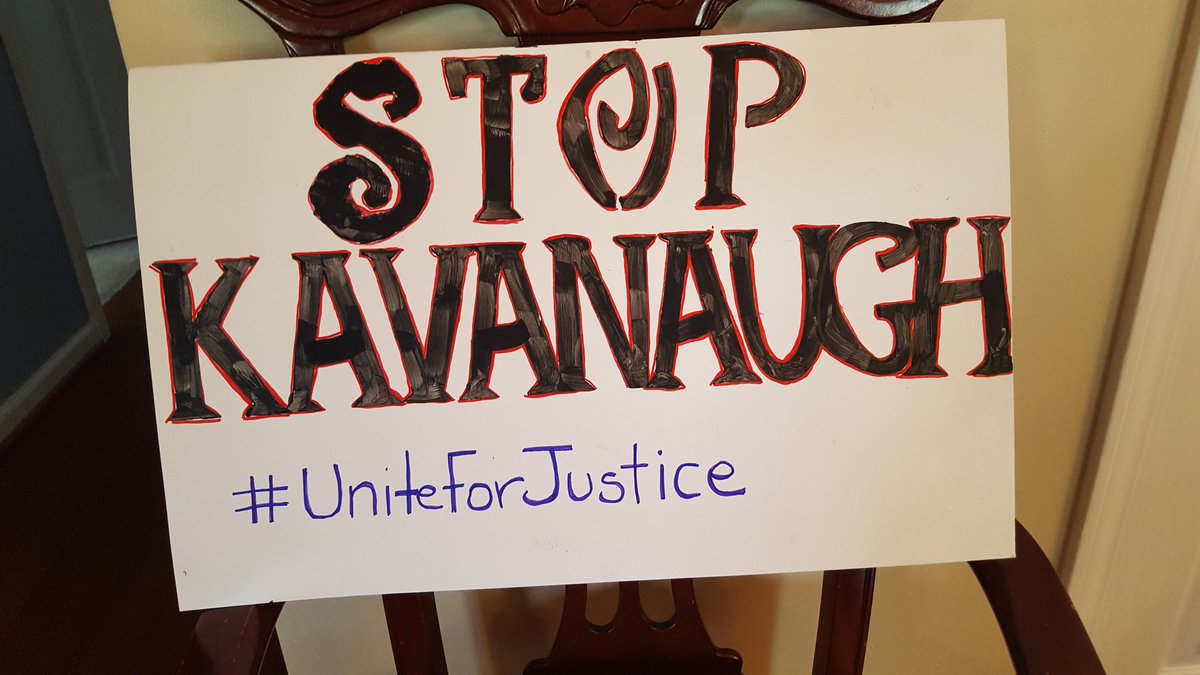 STOP
KAVANAUGH
#UniteForJustice